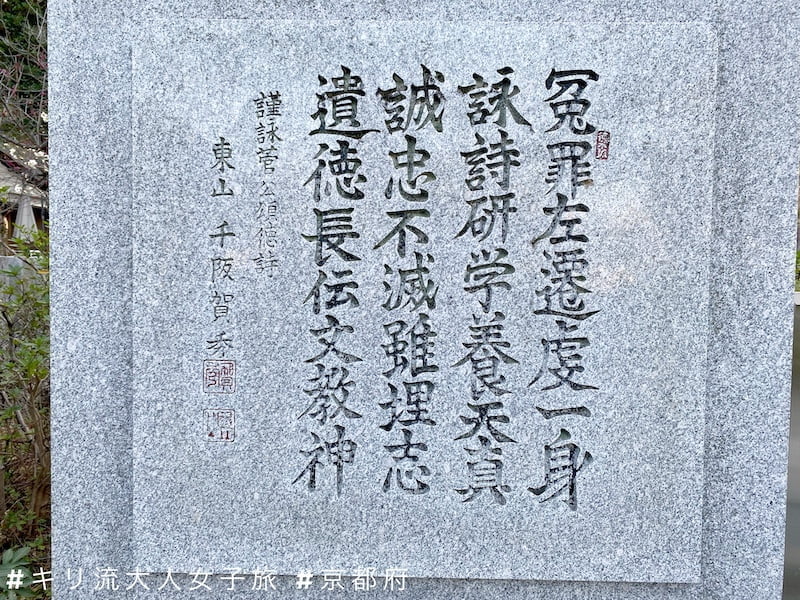 冤罪左遷虔一身
詠詩研学養天真
誠忠不滅雖埋志
遺徳長伝文教神
謹詠菅公頌徳詩
東山 千阪賀
#キリ流大人女子旅 #京都府